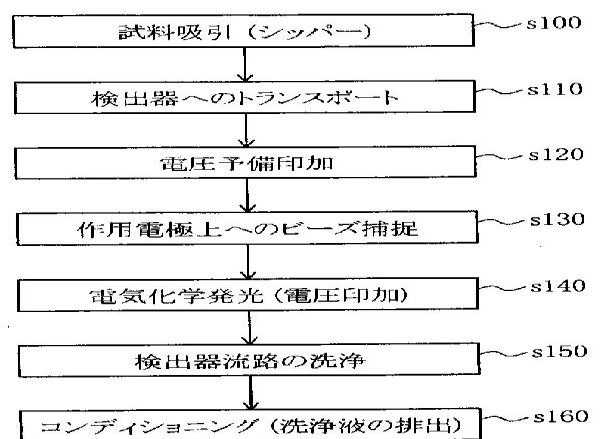 試料吸引(シッパー) s100
検出器へのトランスポート s110
電圧予備印加 s120
作用電極上へのビーズ捕捉 s130
電気化学発光(電圧印加) s140
検出器流路の洗浄 s150
コンディショニング(洗浄液の排出) s160